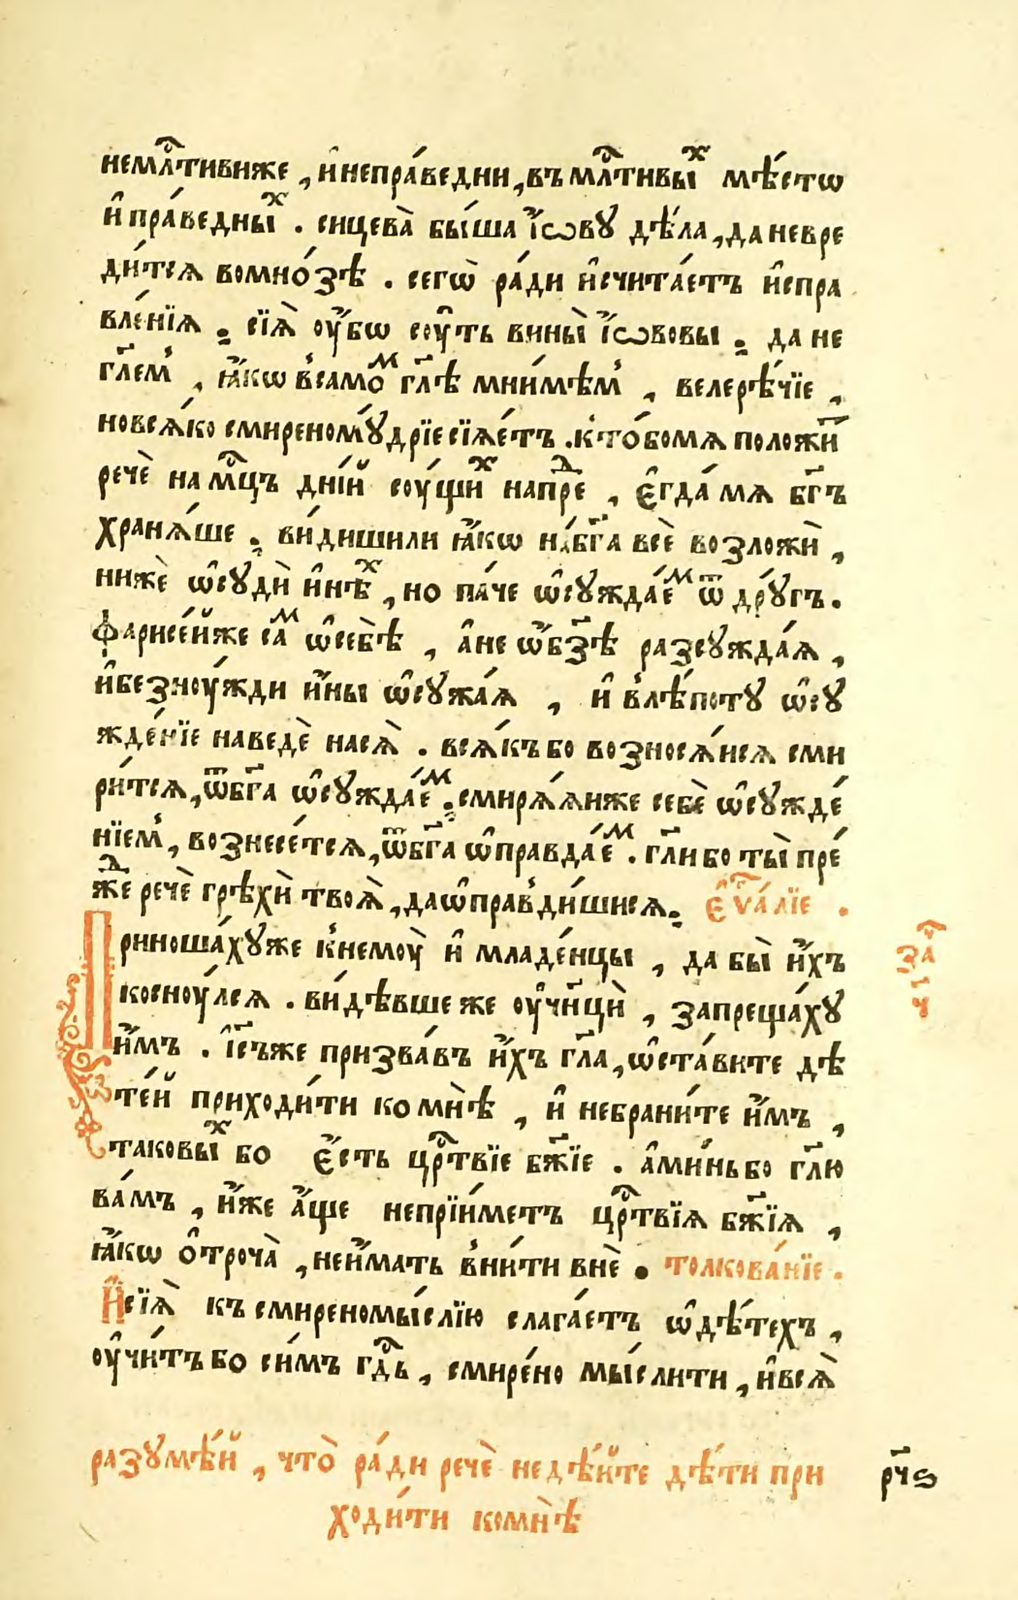 немлⷭ҇тивиже , и҆непра́ведни , въ млⷭ҇тивыⷯ мѣ́стѡ
и҆ пра́ведныⷯ . сицева̀ бы́ша і҆́ѡвꙋ дѣ́ла , да невре
ди́тсѧ вомно́зѣ . сегѡ̀ ра́ди и҆счита́етъ и҆спра
вле́нїѧ . сїѧ̀ ᲂу҆́бѡ сᲂу҆́ть вины̀ і҆́ѡвовы . да не
гл҃ем̾ , ꙗ҆́кѡ в̾самоⷨ гл҃ѣ мни́мѣм̾ , велерѣ́чїе ,
новсѧ́ко смиреномꙋ́дрїе сїѧ́етъ . к̾то́ бо мѧ положи́т
речѐ на мⷭ҇цъ дні́й сᲂу́щиⷯ напреⷣ , є҆гда́ мѧ бг҃ъ
хранѧ́ше . ви́дишили ꙗ҆́кѡ на́бг҃а всѐ возложѝ ,
нижѐ ѡ҆сꙋдѝ и҆нѣⷯ , но па́че ѡ҆сꙋжда́еⷨ ѿ дрꙋ́гъ .
фарисе́йже саⷨ ѡ҆себѣ̀ , а҆не ѡ҆́бз̾ѣ разсꙋжда́ѧ ,
и҆безнᲂу́жди и҆́ны ѡ҆сꙋжа́ѧ , и҆ в̾лѣ́потꙋ ѡ҆сꙋ
жде́нїе наведѐ насѧ̀ . всѧ́къ бо возносѧ́исѧ сми
ри́тсѧ , ѿбг҃а ѡ҆сꙋжда́еⷨ . смирѧ́ѧиже себѐ ѡ҆сꙋжде́
нїем̾ , вознесе́тсѧ , ѿбг҃а ѡ҆правда́еⷨ . гл҃и бо ты̀ пре́
жⷣе речѐ грѣхѝ твоѧ̀ , да ѡ҆прав̾ди́шисѧ . є҆ѵⷢ҇а́лїе .
Приноша́хꙋже к̾немᲂу̀ и҆ младе́нцы , да бы̀ и҆́хъ
коснᲂу́лсѧ . ви́дѣвше же ᲂу҆чн҃цѝ , запреща́хꙋ
и҆́мъ . і҆с҃ъже призва́въ и҆́хъ гл҃а , ѡ҆ста́вите дѣ
те́й приходи́ти ко мнѣ̀ , и҆ небрани́те и҆́мъ ,
таковыⷯ бо є҆́сть црⷭ҇твїе бж҃їе . а҆ми́ньбо гл҃ю
ва́мъ , и҆́же а҆́ще непрїи́метъ црⷭ҇твїѧ бж҃їѧ ,
ꙗ҆́кѡ ѻ҆троча̀ , неи҆́мать в̾ни́ти внѐ . толкова́нїе .
И҆сїѧ̀ къ смиреномы́слїю слага́етъ ѡ҆дѣ́техъ ,
ᲂу҆чи́тъ бо си́мъ гдⷭ҇ь , смире́но мы́слити , и҆всѧ̀
за҆ч
ч҃
разꙋмѣ́й , что̀ ра́ди речѐ недѣ́йте дѣ́ти при
ходи́ти комнѣ̀
рч҃ѕ